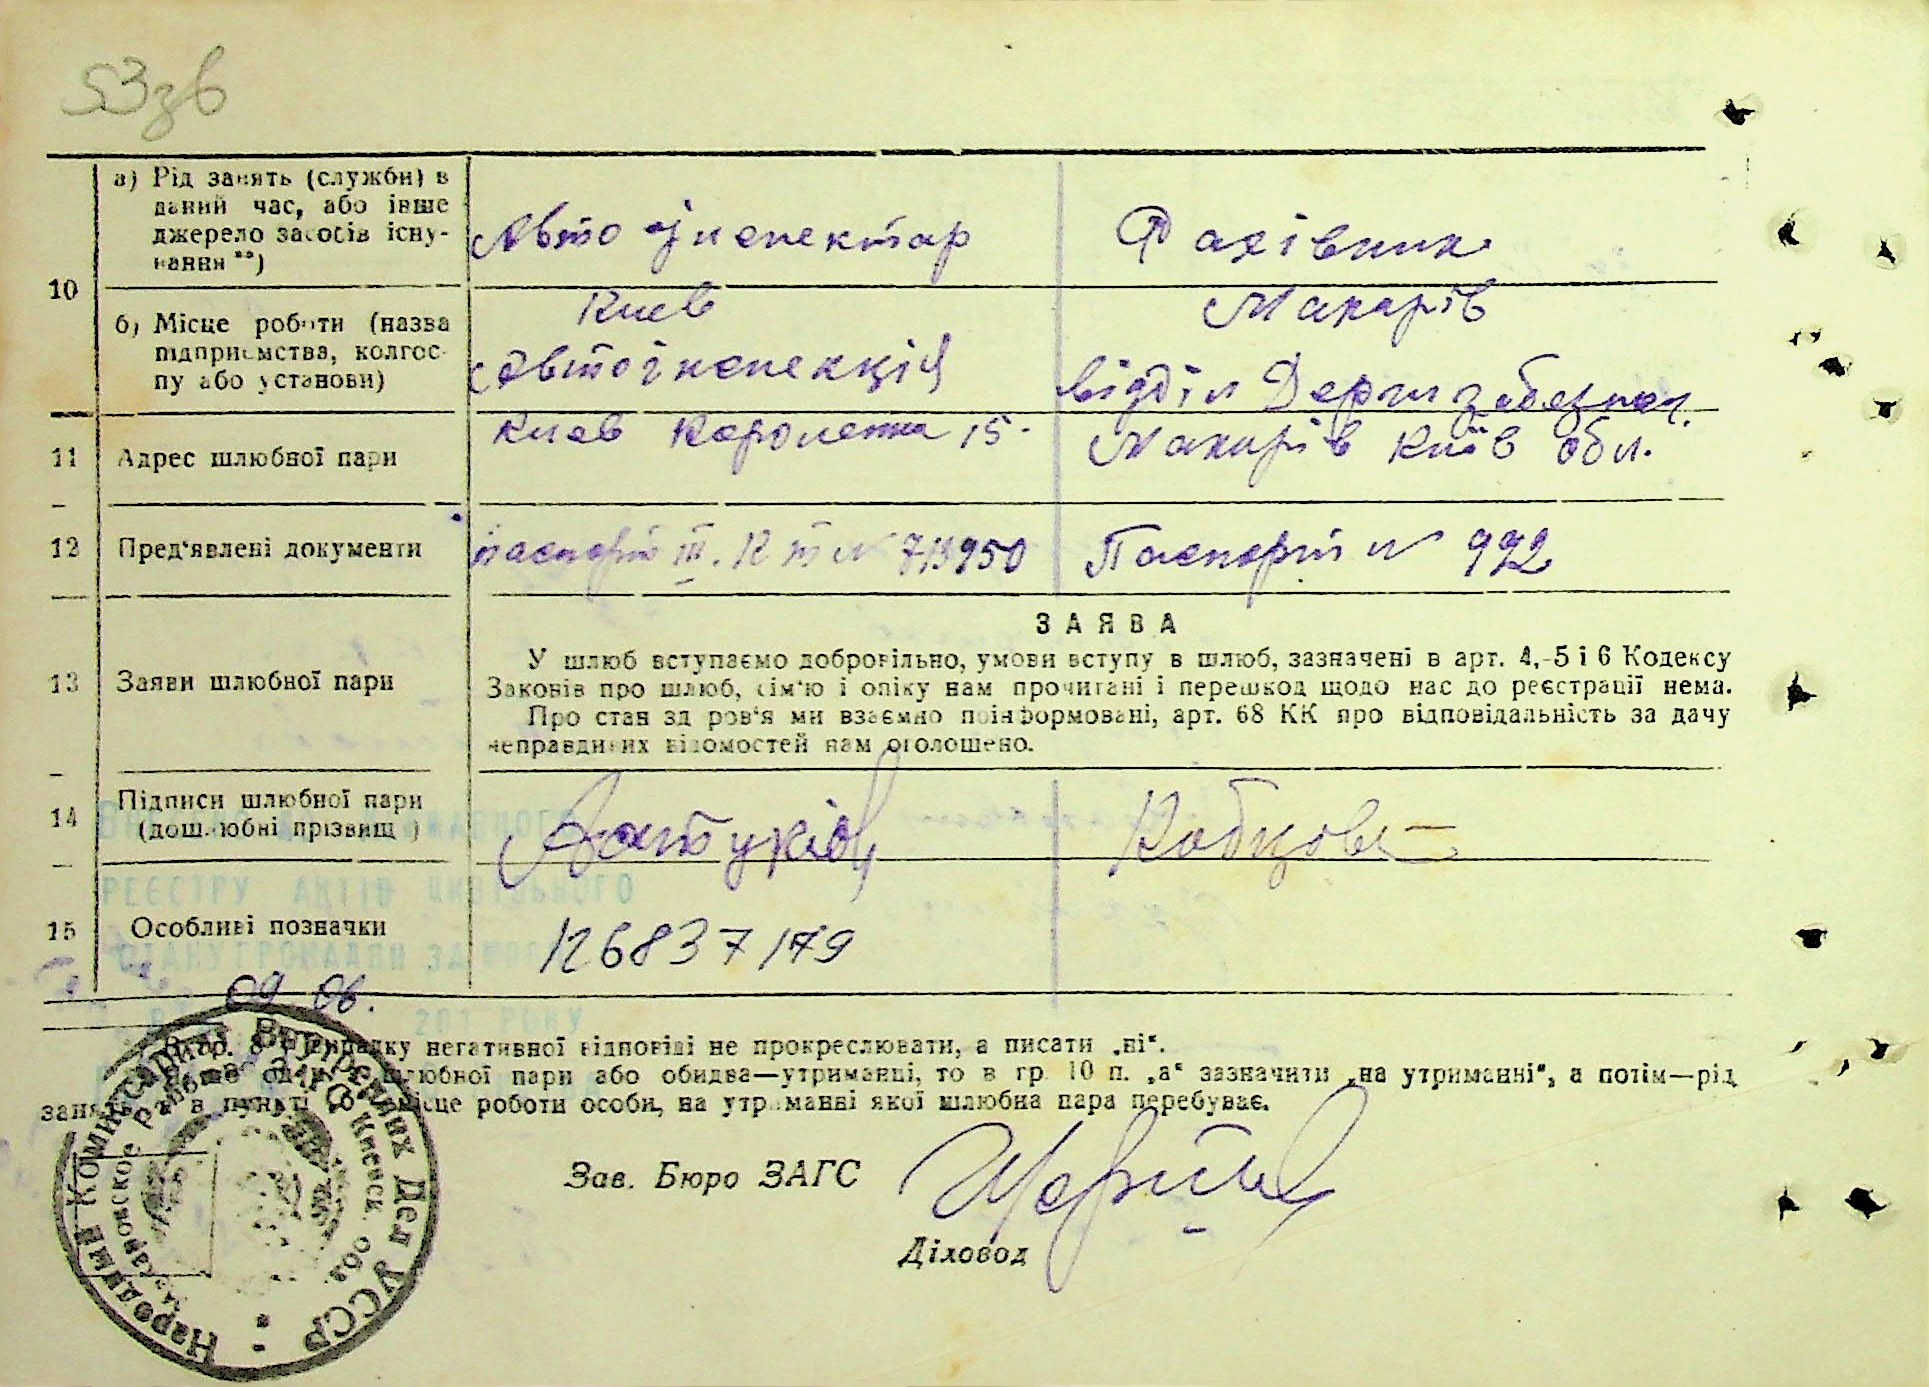 53зв
а) Рід занять (служби) в
даний час, або інше
джерело засобів існу-
вання **)
Авто інспектор
Фахівник
10
б) Місце роботи (назва
підприємства, колгос-
пу або установи)
Киев
Автоінспекція
Макарів
відділ Держ забезпеч.
11
Адрес шлюбної пари
Киев Короленка 15.
Макарів Київ обл.
12
Пред'явлені документи
паспорт III. КТ №
Паспорт № 992
13
Заяви шлюбної пари
ЗАЯВА
У шлюб вступаємо добровільно, умови вступу в шлюб, зазначені в арт. 4,-5 і 6 Кодексу
Законів про шлюб, сім'ю і опіку нам прочитані і перешкод щодо нас до реєстрації нема.
Про стан здоров'я ми взаємно поінформовані, арт. 68 КК про відповідальність за дачу
неправдивих відомостей нам оголошено.
14
Підписи шлюбної пари
(дошлюбні прізвища)
15
Особливі позначки
126837179
РЕЄСТРУ АКТІВ ЦИВІЛЬНОГО
СТАНУ ГРОМАДЯН
09 06.
201 РОКУ
В гр. 8 випадку негативної відповіді не прокреслювати, а писати „ні“.
шлюбної пари або обидва—утриманці, то в гр. 10 п. „а“ зазначити „на утриманні“, а потім—рід
занять, а в пункті місце роботи особи, на утриманні якої шлюбна пара перебуває.
Зав. Бюро ЗАГС
Діловод
Народный Комиссариат Внутренних Дел УССР
Макаровское районное ЗАГС Киевск. обл.